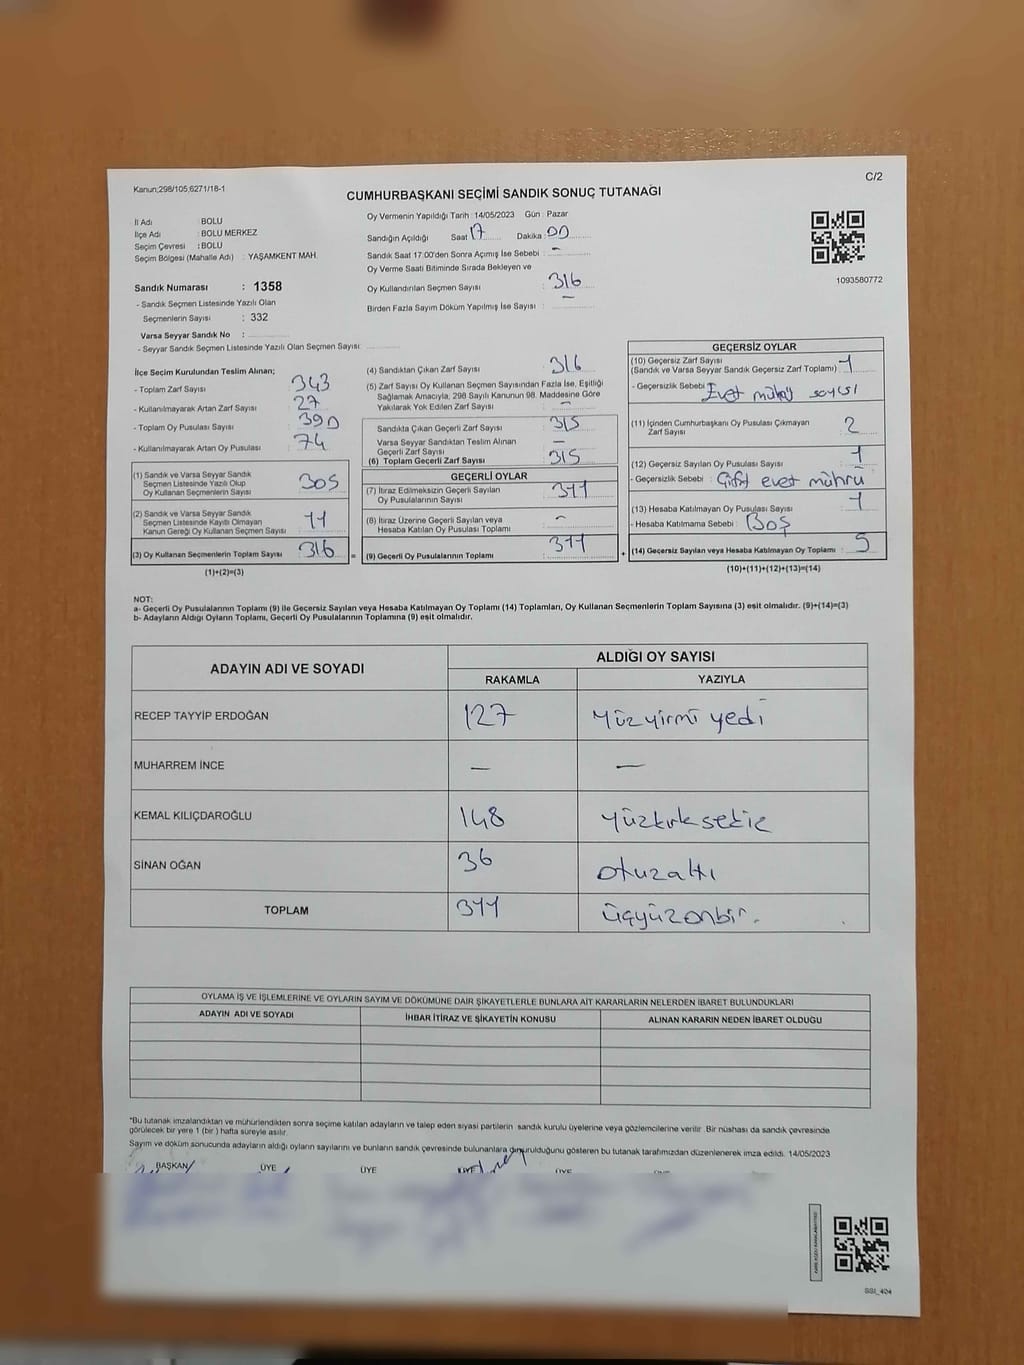 Kanun;298/105,6271/18-1
C/2
CUMHURBAŞKANI SEÇİMİ SANDIK SONUÇ TUTANAĞI
İl Adı : BOLU
İlçe Adı : BOLU MERKEZ
Seçim Çevresi : BOLU
Seçim Bölgesi (Mahalle Adı) : YAŞAMKENT MAH.
Sandık Numarası : 1358
- Sandık Seçmen Listesinde Yazılı Olan
Seçmenlerin Sayısı : 332
Varsa Seyyar Sandık No :
- Seyyar Sandık Seçmen Listesinde Yazılı Olan Seçmen Sayısı:
Oy Vermenin Yapıldığı Tarih : 14/05/2023 Gün : Pazar
Sandığın Açıldığı Saat : 17 Dakika : 00
Sandık Saat 17:00'den Sonra Açımış İse Sebebi : -
Oy Verme Saati Bitiminde Sırada Bekleyen ve
Oy Kullandırılan Seçmen Sayısı : 316
Birden Fazla Sayım Döküm Yapılmış İse Sayısı : -
1093580772
İlçe Seçim Kurulundan Teslim Alınan;
- Toplam Zarf Sayısı : 343
- Kullanılmayarak Artan Zarf Sayısı : 27
- Toplam Oy Pusulası Sayısı : 390
- Kullanılmayarak Artan Oy Pusulası : 74
(1) Sandık ve Varsa Seyyar Sandık
Seçmen Listesinde Yazılı Olup
Oy Kullanan Seçmenlerin Sayısı : 305
(2) Sandık ve Varsa Seyyar Sandık
Seçmen Listesinde Kayıtlı Olmayan
Kanun Gereği Oy Kullanan Seçmen Sayısı : 11
(3) Oy Kullanan Seçmenlerin Toplam Sayısı : 316 =
(1)+(2)=(3)
(4) Sandıktan Çıkan Zarf Sayısı : 316
(5) Zarf Sayısı Oy Kullanan Seçmen Sayısından Fazla İse, Eşitliği
Sağlamak Amacıyla, 298 Sayılı Kanunun 98. Maddesine Göre
Yakılarak Yok Edilen Zarf Sayısı : -
Sandıkta Çıkan Geçerli Zarf Sayısı : 315
Varsa Seyyar Sandıktan Teslim Alınan
Geçerli Zarf Sayısı : -
(6) Toplam Geçerli Zarf Sayısı : 315
GEÇERLİ OYLAR
(7) İtiraz Edilmeksizin Geçerli Sayılan
Oy Pusulalarının Sayısı : 311
(8) İtiraz Üzerine Geçerli Sayılan veya
Hesaba Katılan Oy Pusulası Toplamı : -
(9) Geçerli Oy Pusulalarının Toplamı : 311 +
GEÇERSİZ OYLAR
(10) Geçersiz Zarf Sayısı
(Sandık ve Varsa Seyyar Sandık Geçersiz Zarf Toplamı) : 1
- Geçersizlik Sebebi : Evet mührü sayısı
(11) İçinden Cumhurbaşkanı Oy Pusulası Çıkmayan
Zarf Sayısı : 2
(12) Geçersiz Sayılan Oy Pusulası Sayısı : 1
- Geçersizlik Sebebi : Çift evet mührü
(13) Hesaba Katılmayan Oy Pusulası Sayısı : 1
- Hesaba Katılmama Sebebi : Boş
(14) Geçersiz Sayılan veya Hesaba Katılmayan Oy Toplamı : 5
(10)+(11)+(12)+(13)=(14)
NOT:
a- Geçerli Oy Pusulalarının Toplamı (9) ile Geçersiz Sayılan veya Hesaba Katılmayan Oy Toplamı (14) Toplamları, Oy Kullanan Seçmenlerin Toplam Sayısına (3) eşit olmalıdır. (9)+(14)=(3)
b- Adayların Aldığı Oyların Toplamı, Geçerli Oy Pusulalarının Toplamına (9) eşit olmalıdır.
ADAYIN ADI VE SOYADI
ALDIĞI OY SAYISI
RAKAMLA YAZIYLA
RECEP TAYYİP ERDOĞAN 127 yüzyirmi yedi
MUHARREM İNCE - -
KEMAL KILIÇDAROĞLU 148 yüzkırksekiz
SİNAN OĞAN 36 otuzaltı
TOPLAM 311 üçyüzonbir.
OYLAMA İŞ VE İŞLEMLERİNE VE OYLARIN SAYIM VE DÖKÜMÜNE DAİR ŞİKAYETLERLE BUNLARA AİT KARARLARIN NELERDEN İBARET BULUNDUKLARI
ADAYIN ADI VE SOYADI İHBAR İTİRAZ VE ŞİKAYETİN KONUSU ALINAN KARARIN NEDEN İBARET OLDUĞU
*Bu tutanak imzalandıktan ve mühürlendikten sonra seçime katılan adayların ve talep eden siyasi partilerin sandık kurulu üyelerine veya gözlemcilerine verilir. Bir nüshası da sandık çevresinde
görülecek bir yere 1 (bir) hafta süreyle asılır.
Sayım ve döküm sonucunda adayların aldığı oyların sayılarını ve bunların sandık çevresinde bulunanlara duyurulduğunu gösteren bu tutanak tarafımızdan düzenlenerek imza edildi. 14/05/2023
BAŞKAN ÜYE ÜYE ÜYE ÜYE
SSI_404